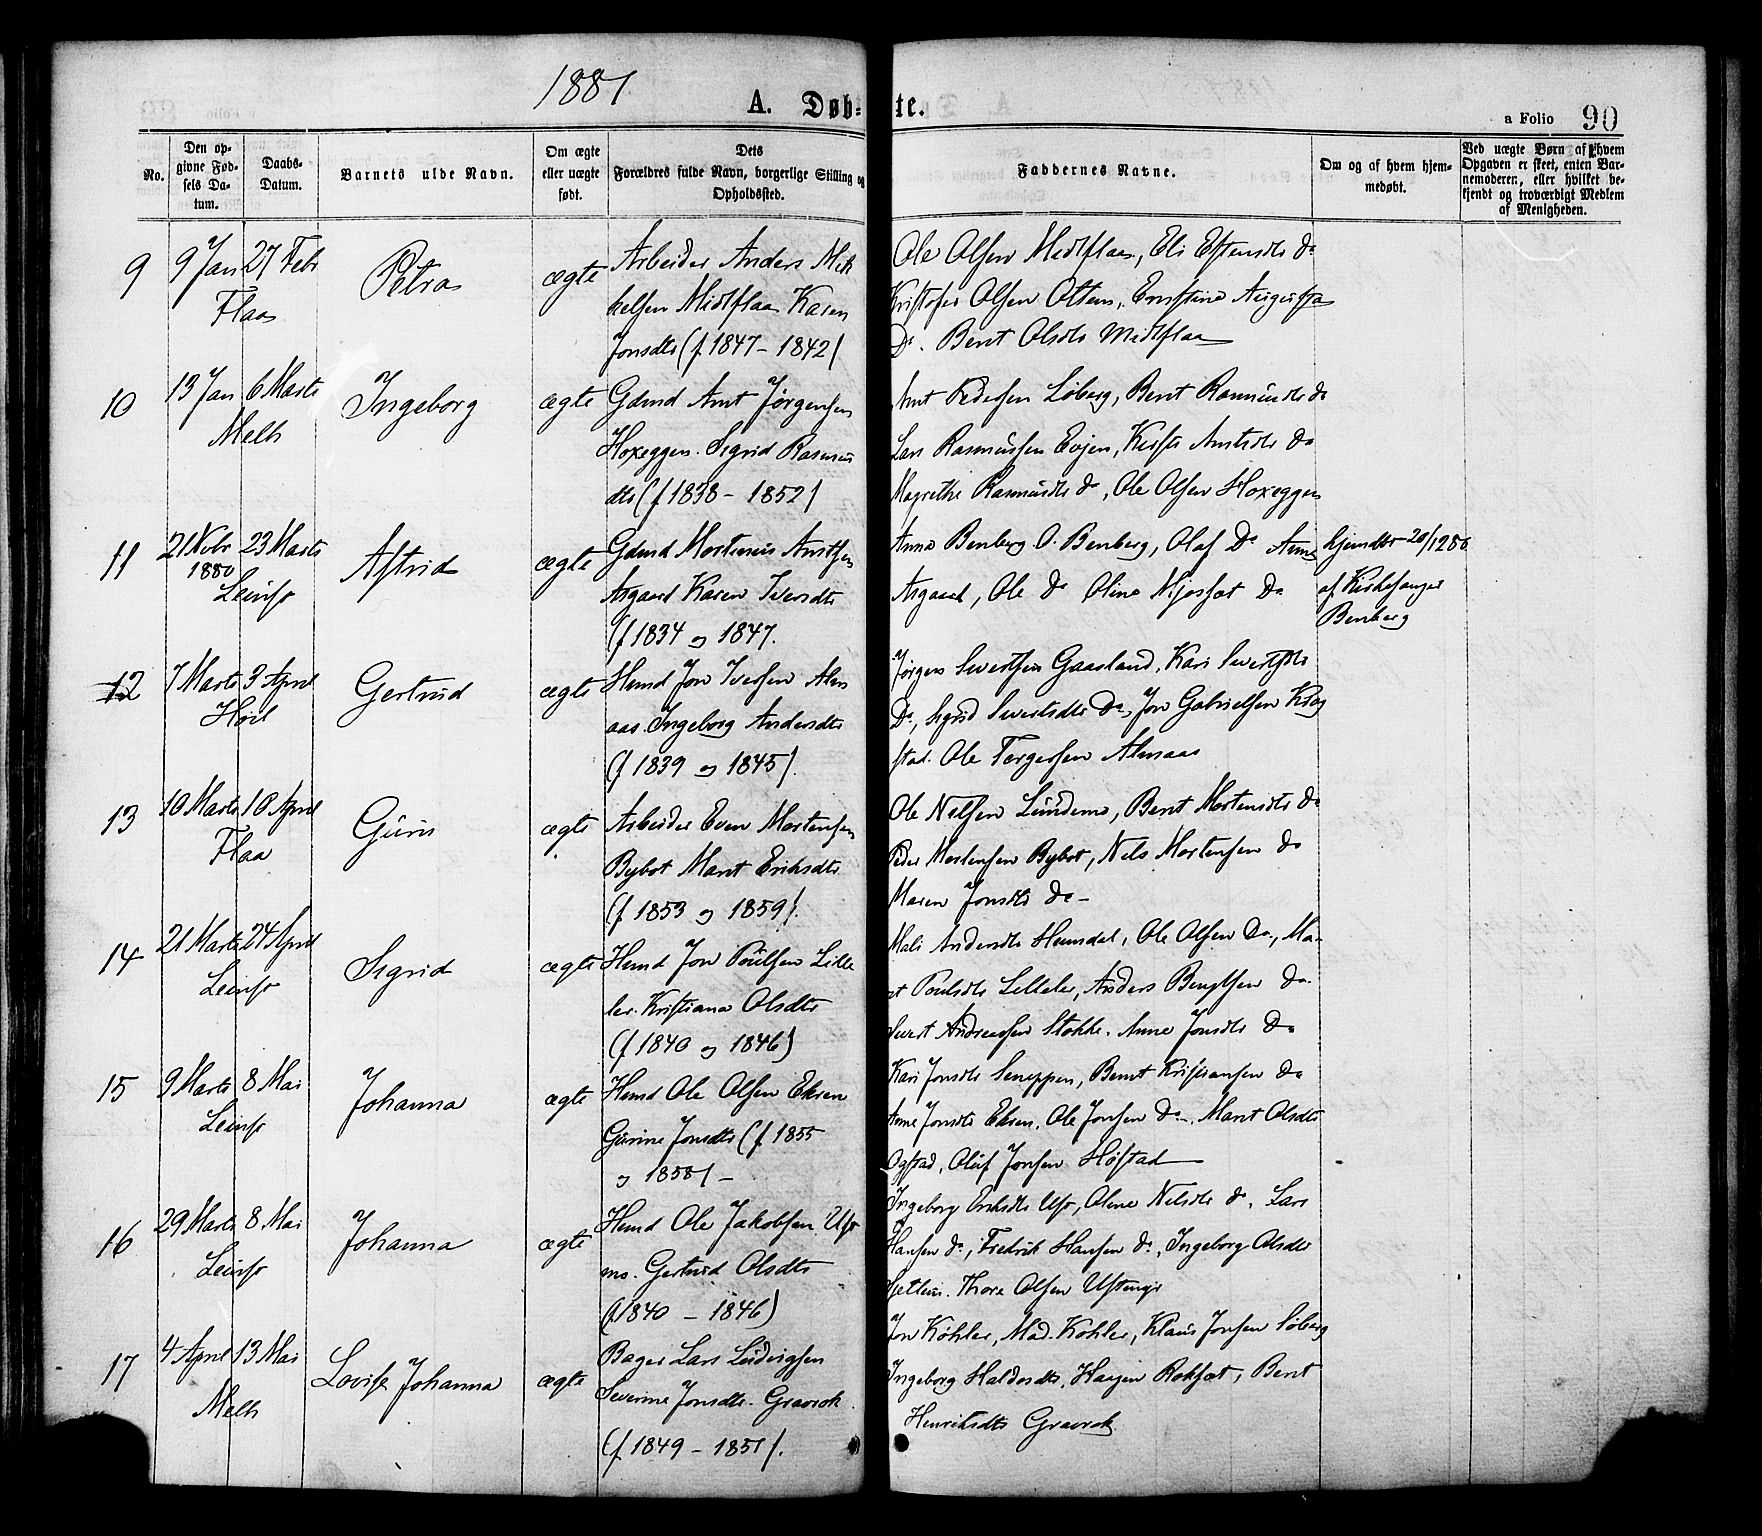 1881
A. Døb-
te.
a Folio 90
No.
Den op-
givne Fød-
sels Da-
tum.
Daabs-
Datum.
Barnets fulde Navn.
Om ægte
eller uægte
født.
Dets
Forældres fulde Navn, borgerlige Stilling og
Opholdssted.
Faddernes Navne.
Om og af hvem hjem-
medøbt.
Ved uægte Børn af hvem
Opgaven er skeet, enten Bar-
nemoderen, eller hvilket be-
kjendt og troværdigt Medlem
af Menigheden.
9 9 Jan 27 Febr
Flaa
Petra
ægte
Arbeider Anders Mik
kelsen Midtflaa Karen
Jonsdtr (f 1847 - 1842)
Ole Olsen Midtflaa, Eli Estensdtr Do
Kristofer Olsen Olstens, Ernstine Augusta
Do. Berit Olsdtr Midtflaa
10 13 Jan 6 Marts
Melh
Ingeborg
ægte
Gdmd Arnt Jørgensen
Hoxeggen. Sigrid Rasmus
dtr (f 1838 - 1852)
Arnt Pedersen Løberg, Berit Rasmusdtr do
Lars Rasmussen Evjen, Kirsti Arntsdtr Do
Magrethe Rasmusdtr do, Ole Olsen Hoxeggen
11 21 Nvbr 23 Marts
1880
Leinst
Astrid
ægte
Gdmd Mortinus Arntsen
Asgaard Karen Iversdtr
(f 1834 og 1847.
Anna Benberg O. Benberg, Olaf Do Anne
Asgaard, Ole do Oline Nyosfæt Do
hjemdbt 20/12 80
af Kirkesanger
Benberg
12 7 Marts 3 April
Høil
Gertrud
ægte
Husmd Jon Iversen Alm
aas. Ingeborg Andersdtr
(f 1839 og 1845).
Jørgen Sivertsen Gaasland, Kari Sivertsdtr
Do, Sigrid Sivertsdtr Do, Jon Gabrielsen Krog
stad. Ole Tørgersen Almaas
13 10 Marts 10 April
Flaa
Guru
ægte
Arbeider Even Mortensen
Bybot Marit Eriksdtr
(f 1853 og 1859).
Ole Nilsen Lundemo, Berit Mortensdtr do
Peder Mortensen Bybot, Nils Mortensen do
Maren Jonsdtr do -
14 21 Marts 24 April
Leinst
Sigrid
ægte
Husmd Jon Poulsen Lille
ler. Kristiana Olsdtr
(f 1840 og 1846)
Mali Andersdtr Heimdal, Ole Olsen Do, Ma-
rit Poulsdtr Lilleler, Anders Bengtsen do.
Sivert Andreassen Stokke. Anne Jonsdtr do
15 9 Marts 8 Mai
Leinst
Johanna
ægte
Husmd Ole Olsen Ekren
Gurine Jonsdtr (f 1855
og 1858) -
Kari Jonsdtr Sneppen, Bernt Kristiansen do
Anne Jonsdtr Ekren. Ole Jonsen do -. Marit Olsdtr
Ogstad, Oluf Jonsen Høstad
16 29 Marts 8 Mai
Leinst
Johanna
ægte
Husmd Ole Jakobsen Ust
mo. Gertrud Olsdtr
(f 1840 - 1846)
Ingeborg Eriksdtr Ust, Oline Nilsdtr do, Lars
Hansen do, Fredrik Hansen do, Ingeborg Olsdtr
Thore Olsen Usteng
17 4 April 13 Mai
Melh
Lovise Johanna
ægte
Bager Lars Ludvigsen
Severine Jonsdtr. Gravrok
(f 1849 - 1851).
Jon Køhler, Mad. Køhler, Klaus Jonsen Søberg
Ingeborg Haldosdtr, Haagen Rokset, Berit
Henriksdtr Gravrok.